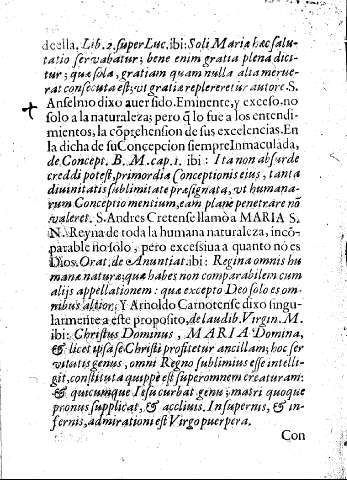 de ella. Lib. 2. super Luc. ibi: Soli Mariæ hæc salu-
tatio servabatur; bene enim gratia plena dici-
tur; quæ sola, gratiam quam nulla alta merue-
rat consecuta est; vt gratiæ repleretur autore. S.
Anselmo dixo auer sido. Eminente, y exceso. no
solo a la naturaleza; pero q̃ lo fue a los entendi-
mientos, la cõprehension de sus excelencias. En
la dicha de su Concepcion siempre Inmaculada,
de Concept. B. M. cap. 1. ibi: Ita non absurde
creddi potest, primordia Conceptionis eius, tanta
diuinitatis sublimitate præsignata, vt humana-
rum Conceptio mentium, eam plane penetrare nõ
valeret. S. Andres Cretense llamò a MARIA S.
N. Reyna de toda la humana naturaleza, incõ-
parable no solo, pero excessiua a quanto no es
Dios. Orat. de Anuntiat. ibi: Regina omnis hu-
manæ naturæ: quæ habes non comparabilem cum
alijs appellationem: quæ excepto Deo solo es om-
nibus altior; Y Arnoldo Carnotense dixo singu-
larmente a este proposito, de laudib. Virgin. M.
ibi: Christus Dominus, MARIA Domina,
& licet ipsa se Christi profitetur ancillam; hoc ser
vitutis genus, omni Regno sublimius esse intelli-
git, constituta quippè est super omnem creaturam:
& quicumque Iesu curbat genu; matri quoque
pronus supplicat, & accliuis. In supernis, & in-
fernis, admirationi est Virgo puerpera.
Con